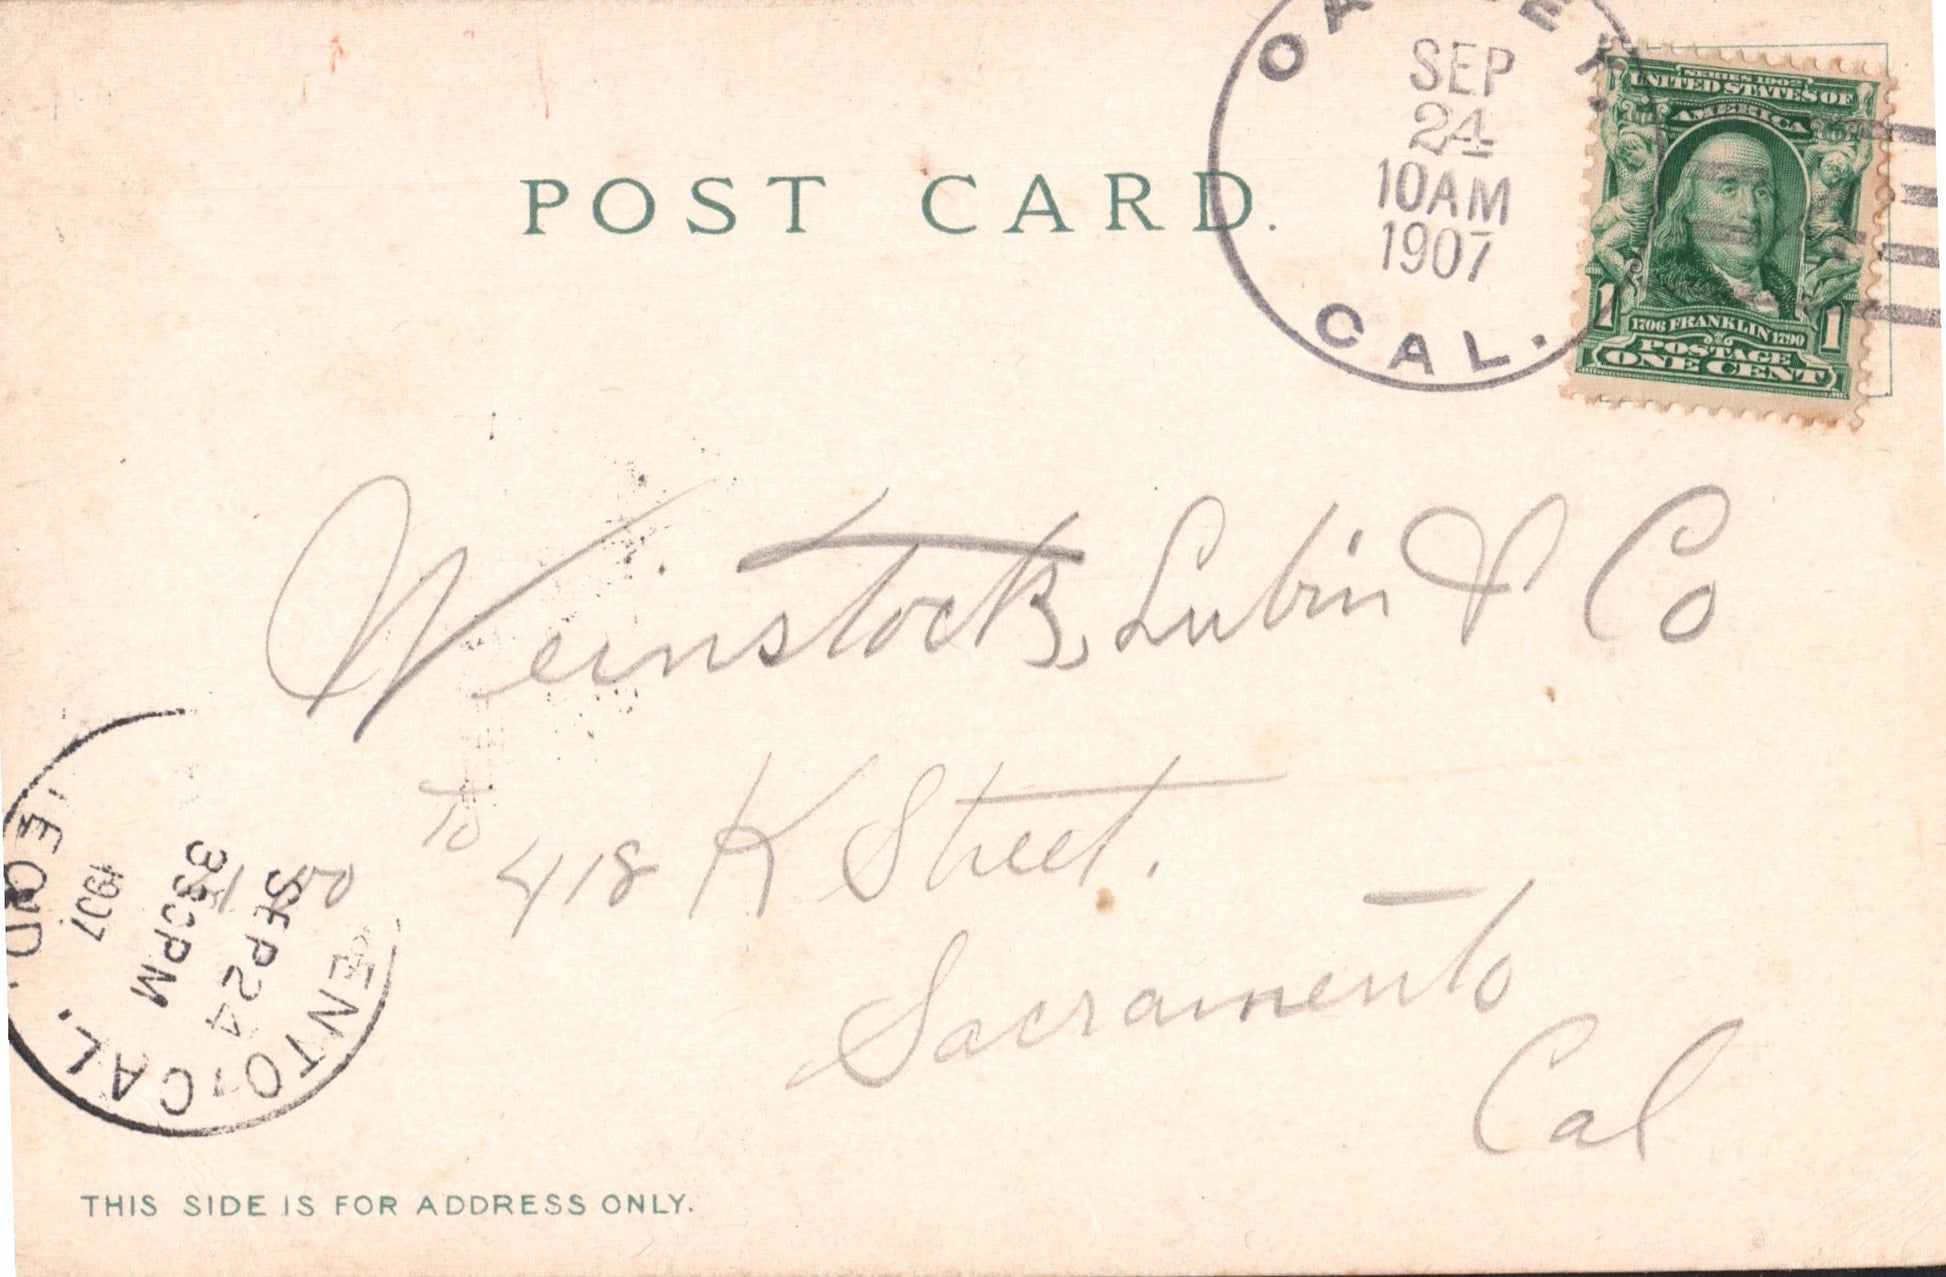 SEP
24
10AM
1907
CAL.
SERIES 1902
UNITED STATES OF
AMERICA
1 1
1706 FRANKLIN 1790
POSTAGE
ONE CENT
POST CARD.
Weinstock, Lubin & Co
To
418 K Street.
Sacramento
Cal
SEP 24
3 30PM
1907
ENTO, CAL.
REC'D.
THIS SIDE IS FOR ADDRESS ONLY.